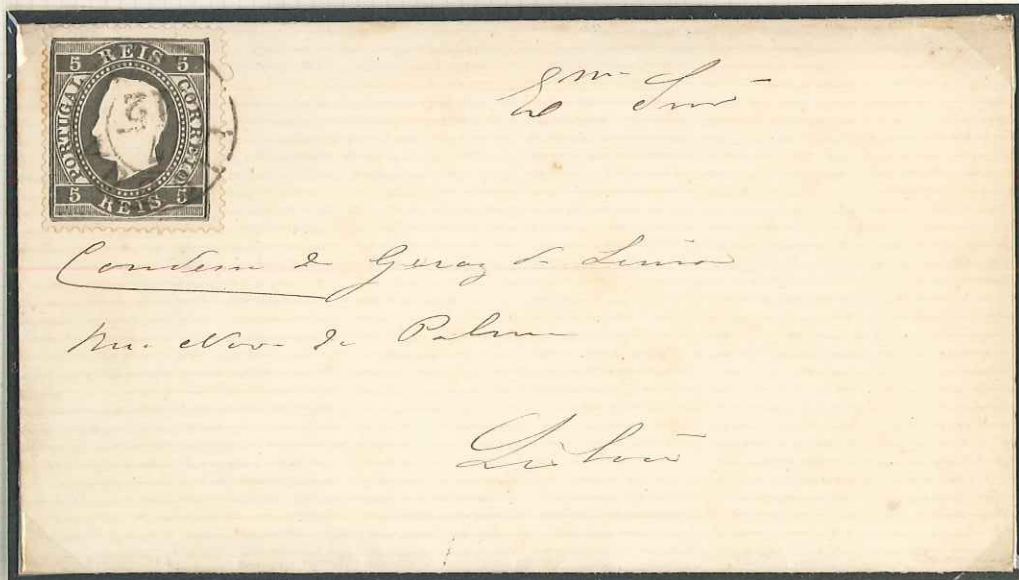 5 REIS 5
PORTUGAL CORREIO
5 REIS 5
Exma Snra
Condessa de Geraz de Lima
Rua Nova da Palma
Lisboa